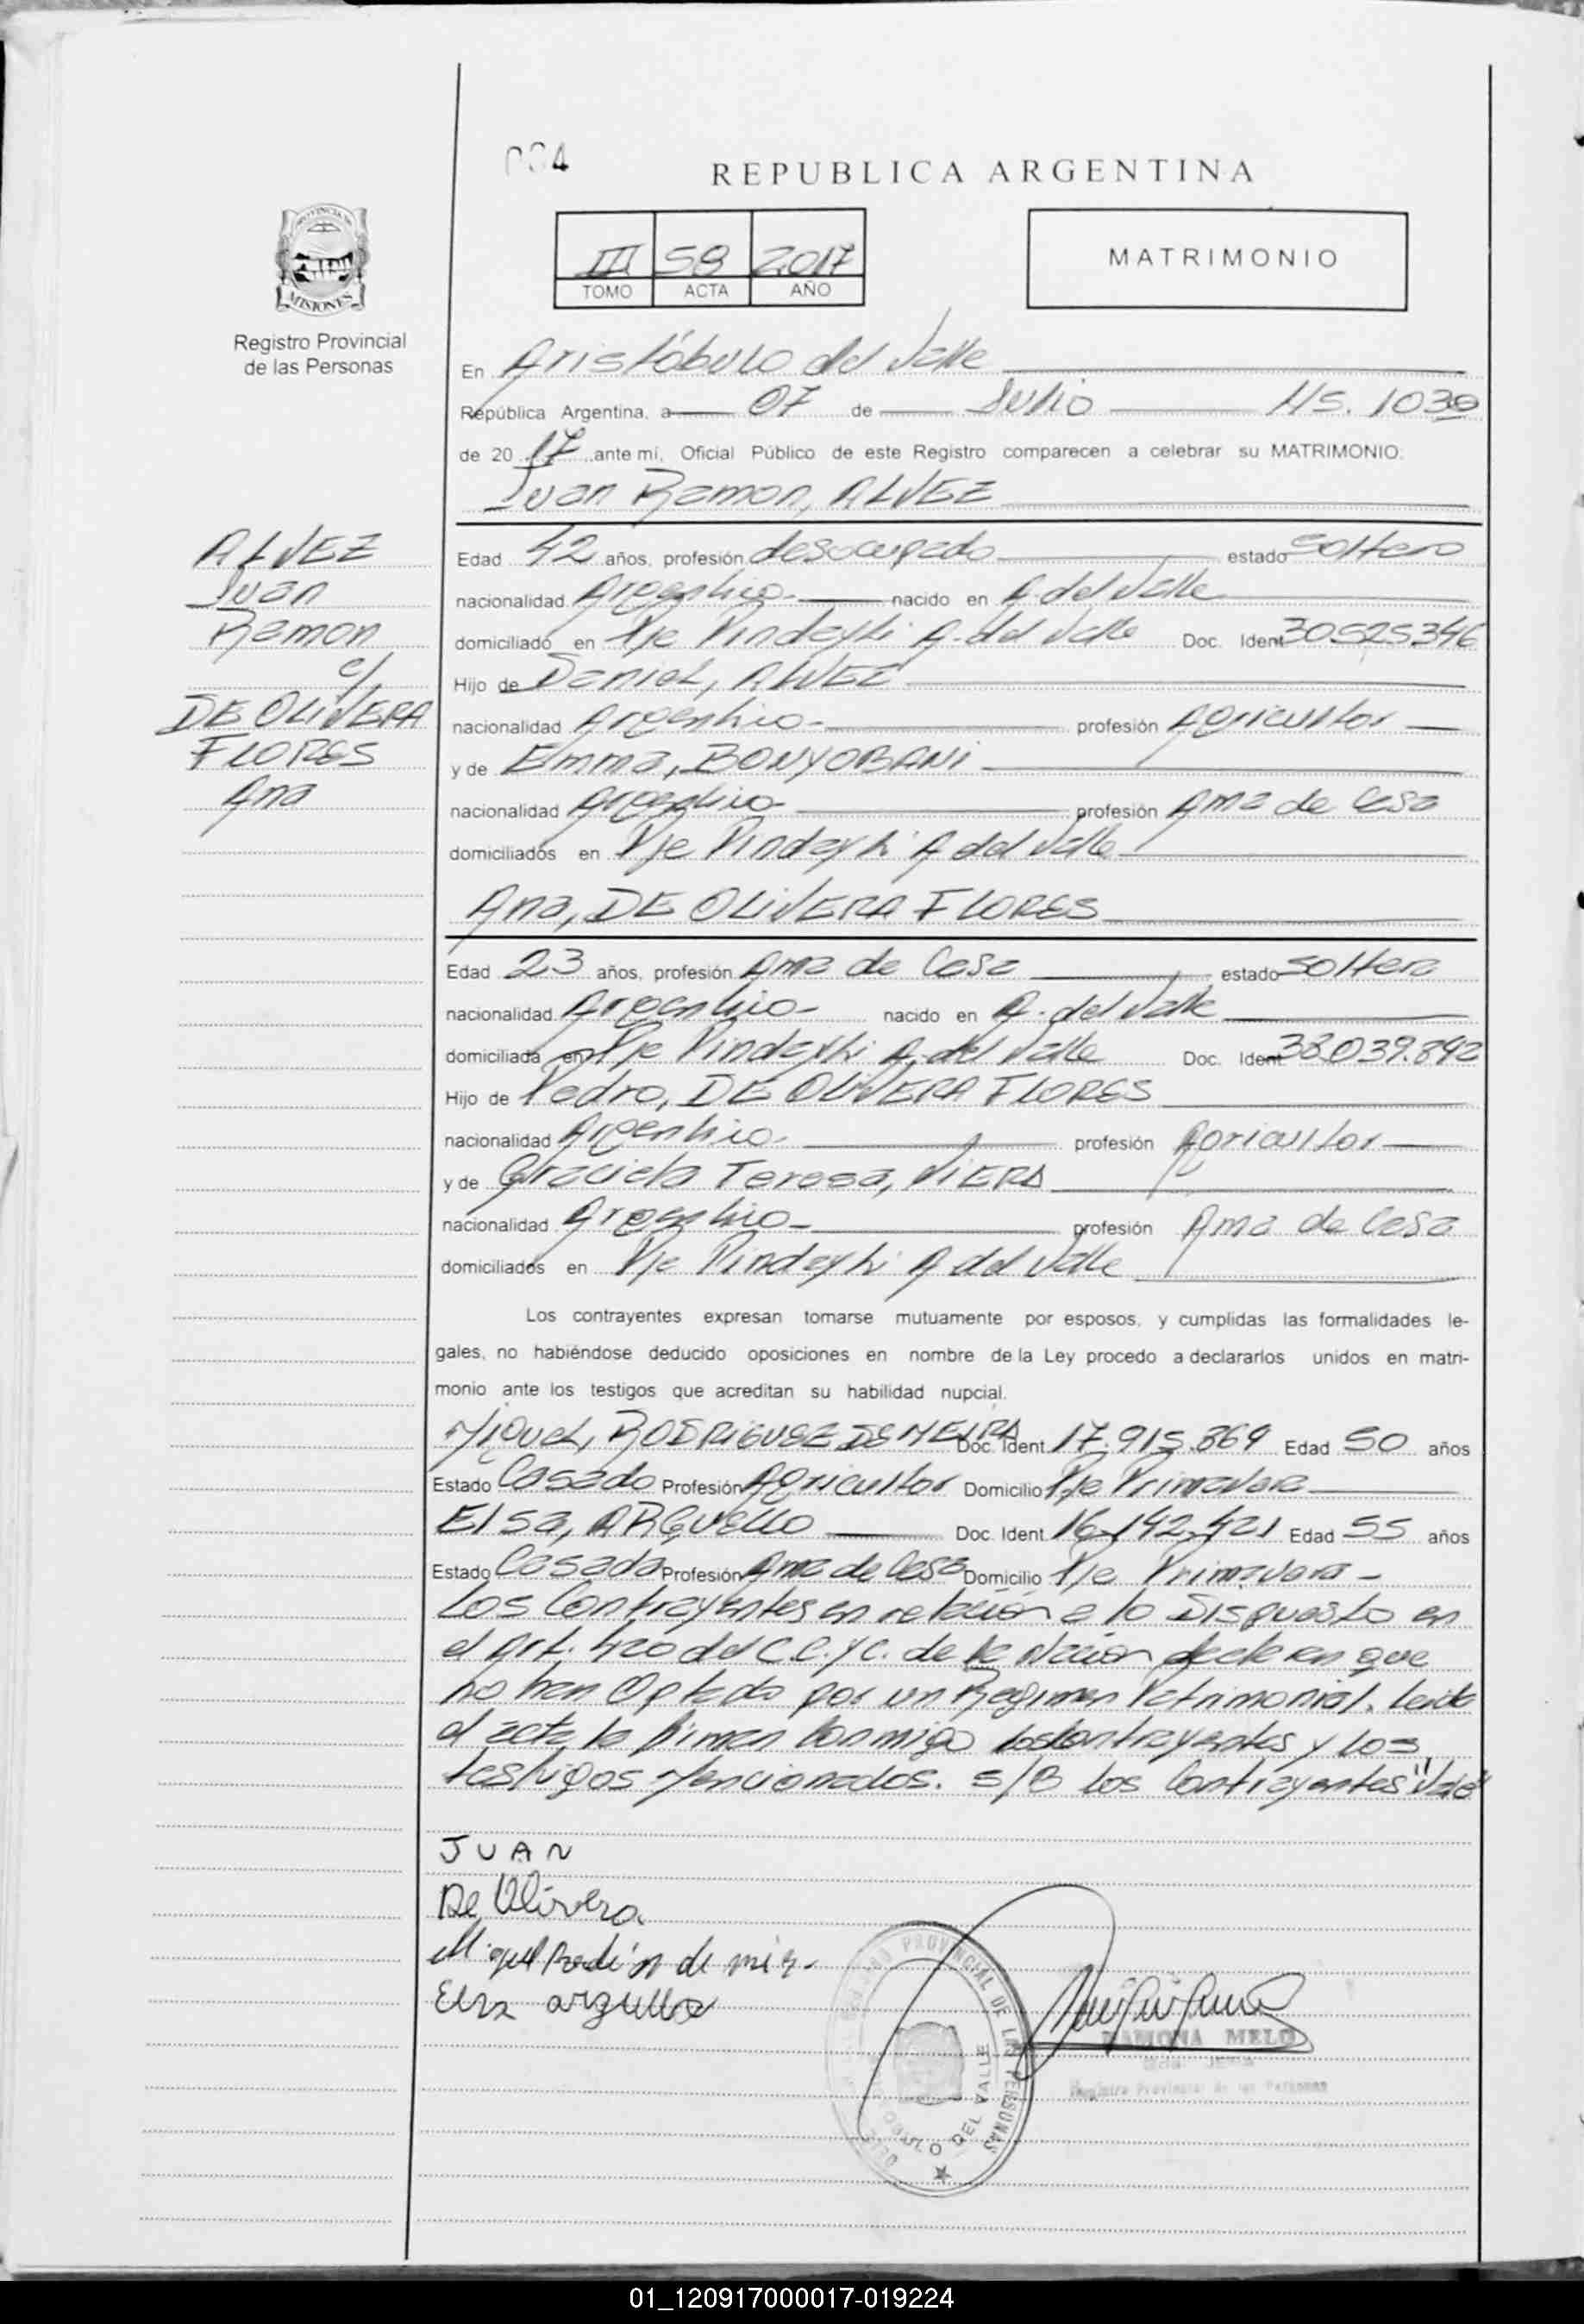 004
REPUBLICA ARGENTINA
III 58 2017
TOMO ACTA AÑO
MATRIMONIO
PROVINCIA DE
MISIONES
Registro Provincial
de las Personas
En Aristóbulo del Valle
República Argentina, a 07 de Julio Hs. 1030
de 20 17 ante mi, Oficial Público de este Registro comparecen a celebrar su MATRIMONIO:
Juan Ramon, ALVEZ
ALVEZ
Juan
Ramon
c/
DE OLIVERA
FLORES
Ana
Edad 42 años, profesión desocupado estado Soltero
nacionalidad Argentino- nacido en A. del Valle
domiciliado en Pje Pindayti A. del Valle Doc. Ident 30525346
Hijo de Daniel, ALVEZ
nacionalidad Argentino- profesión Agricultor
y de Emma, BONYOBANI
nacionalidad Argentino- profesión Ama de Casa
domiciliados en Pje Pindayti A del Valle
Ana, DE OLIVERA FLORES
Edad 23 años, profesión Ama de Casa estado Soltera
nacionalidad Argentino- nacido en A. del Valle
domiciliada en Pje Pindayti A. del Valle Doc. Ident 38.039.892
Hijo de Pedro, DE OLIVERA FLORES
nacionalidad Argentino- profesión Agricultor
y de Graciela Teresa, VIERA
nacionalidad Argentino- profesión Ama de Casa
domiciliados en Pje Pindayti A del Valle
Los contrayentes expresan tomarse mutuamente por esposos, y cumplidas las formalidades le-
gales, no habiéndose deducido oposiciones en nombre de la Ley procedo a declararlos unidos en matri-
monio ante los testigos que acreditan su habilidad nupcial.
Miguel, RODRIGUEZ DE MEIRA Doc. Ident 17.915.869 Edad 50 años
Estado Casado Profesión Agricultor Domicilio Pje Primavera
Elsa, ARGUELLO Doc. Ident 16.142.421 Edad 55 años
Estado Casada Profesión Ama de Casa Domicilio Pje Primavera -
Los Contrayentes en relación a lo Dispuesto en
el Art. 420 del C.C. y C. de la Nación declaran que
no han Optado por un Regimen Patrimonial. Leida
el acta la firman conmigo los Contrayentes y los
testigos Mencionados. S/B los Contrayentes "Vale"
JUAN
De Olivera
Elsa arguello
REGISTRO PROVINCIAL DE LAS PERSONAS
ARISTOBULO DEL VALLE
RAMONA MELO
Registro Provincial de las Personas
01_120917000017-019224